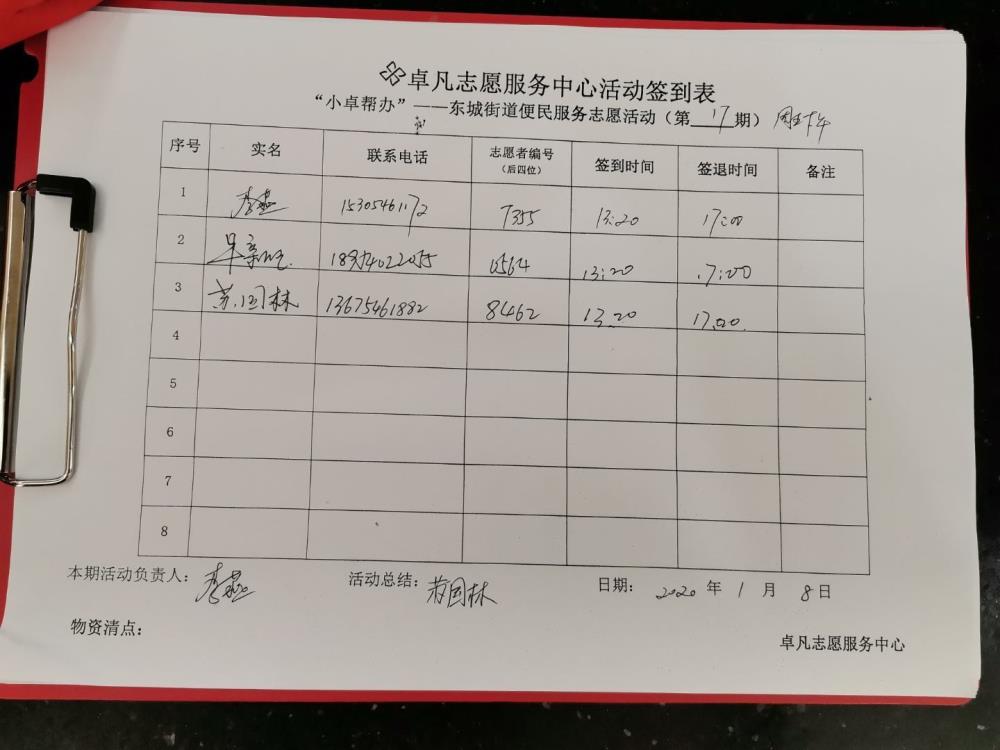 卓凡志愿服务中心活动签到表
“小卓帮办”——东城街道便民服务志愿活动（第17期） 周三下午
序号 实名 联系电话 志愿者编号（后四位） 签到时间 签退时间 备注
1 李燕 15305461172 7355 13:20 17:00
2 0564 13:20 17:00
3 林 13675461882 8462 13:20 17:00
4
5
6
7
8
本期活动负责人：李燕 活动总结：国林 日期：2020年1月8日
物资清点：
卓凡志愿服务中心